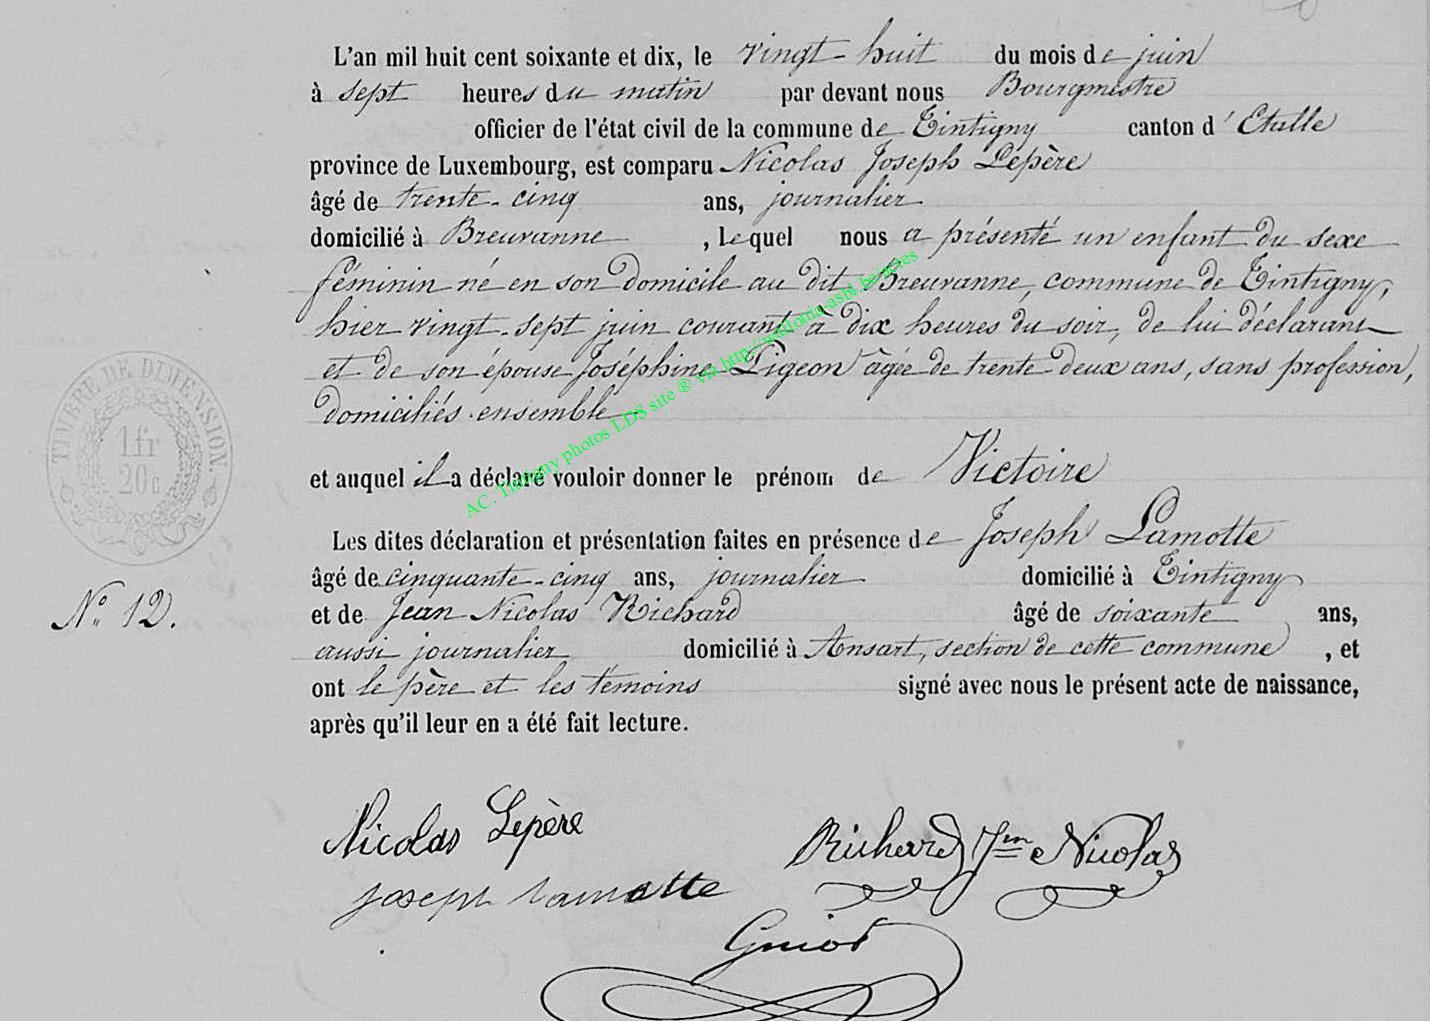 L'an mil huit cent soixante et dix, le vingt-huit du mois de juin
à sept heures du matin par devant nous Bourgmestre
officier de l'état civil de la commune de Tintigny canton d'Etalle
province de Luxembourg, est comparu Nicolas Joseph Lepère
âgé de trente-cinq ans, journalier
domicilié à Breuvanne, lequel nous a présenté un enfant du sexe
féminin né en son domicile au dit Breuvanne, commune de Tintigny,
hier vingt-sept juin courant à dix heures du soir, de lui déclarant
et de son épouse Joséphine Pigeon âgée de trente-deux ans, sans profession,
domiciliés ensemble
et auquel il a déclaré vouloir donner le prénom de Victoire
Les dites déclaration et présentation faites en présence de Joseph Lamotte
âgé de cinquante-cinq ans, journalier domicilié à Tintigny
et de Jean Nicolas Richard âgé de soixante ans,
aussi journalier domicilié à Ansart, section de cette commune, et
ont le père et les témoins signé avec nous le présent acte de naissance,
après qu'il leur en a été fait lecture.
TIMBRE DE DIMENSION.
1 fr
20 c
N° 12.
AC. Tintigny photos LDS site ® via http://wallonia-asbl.be/actes
Nicolas Lepère
Richard Jen Nicolas
Joseph Lamotte
Guiot